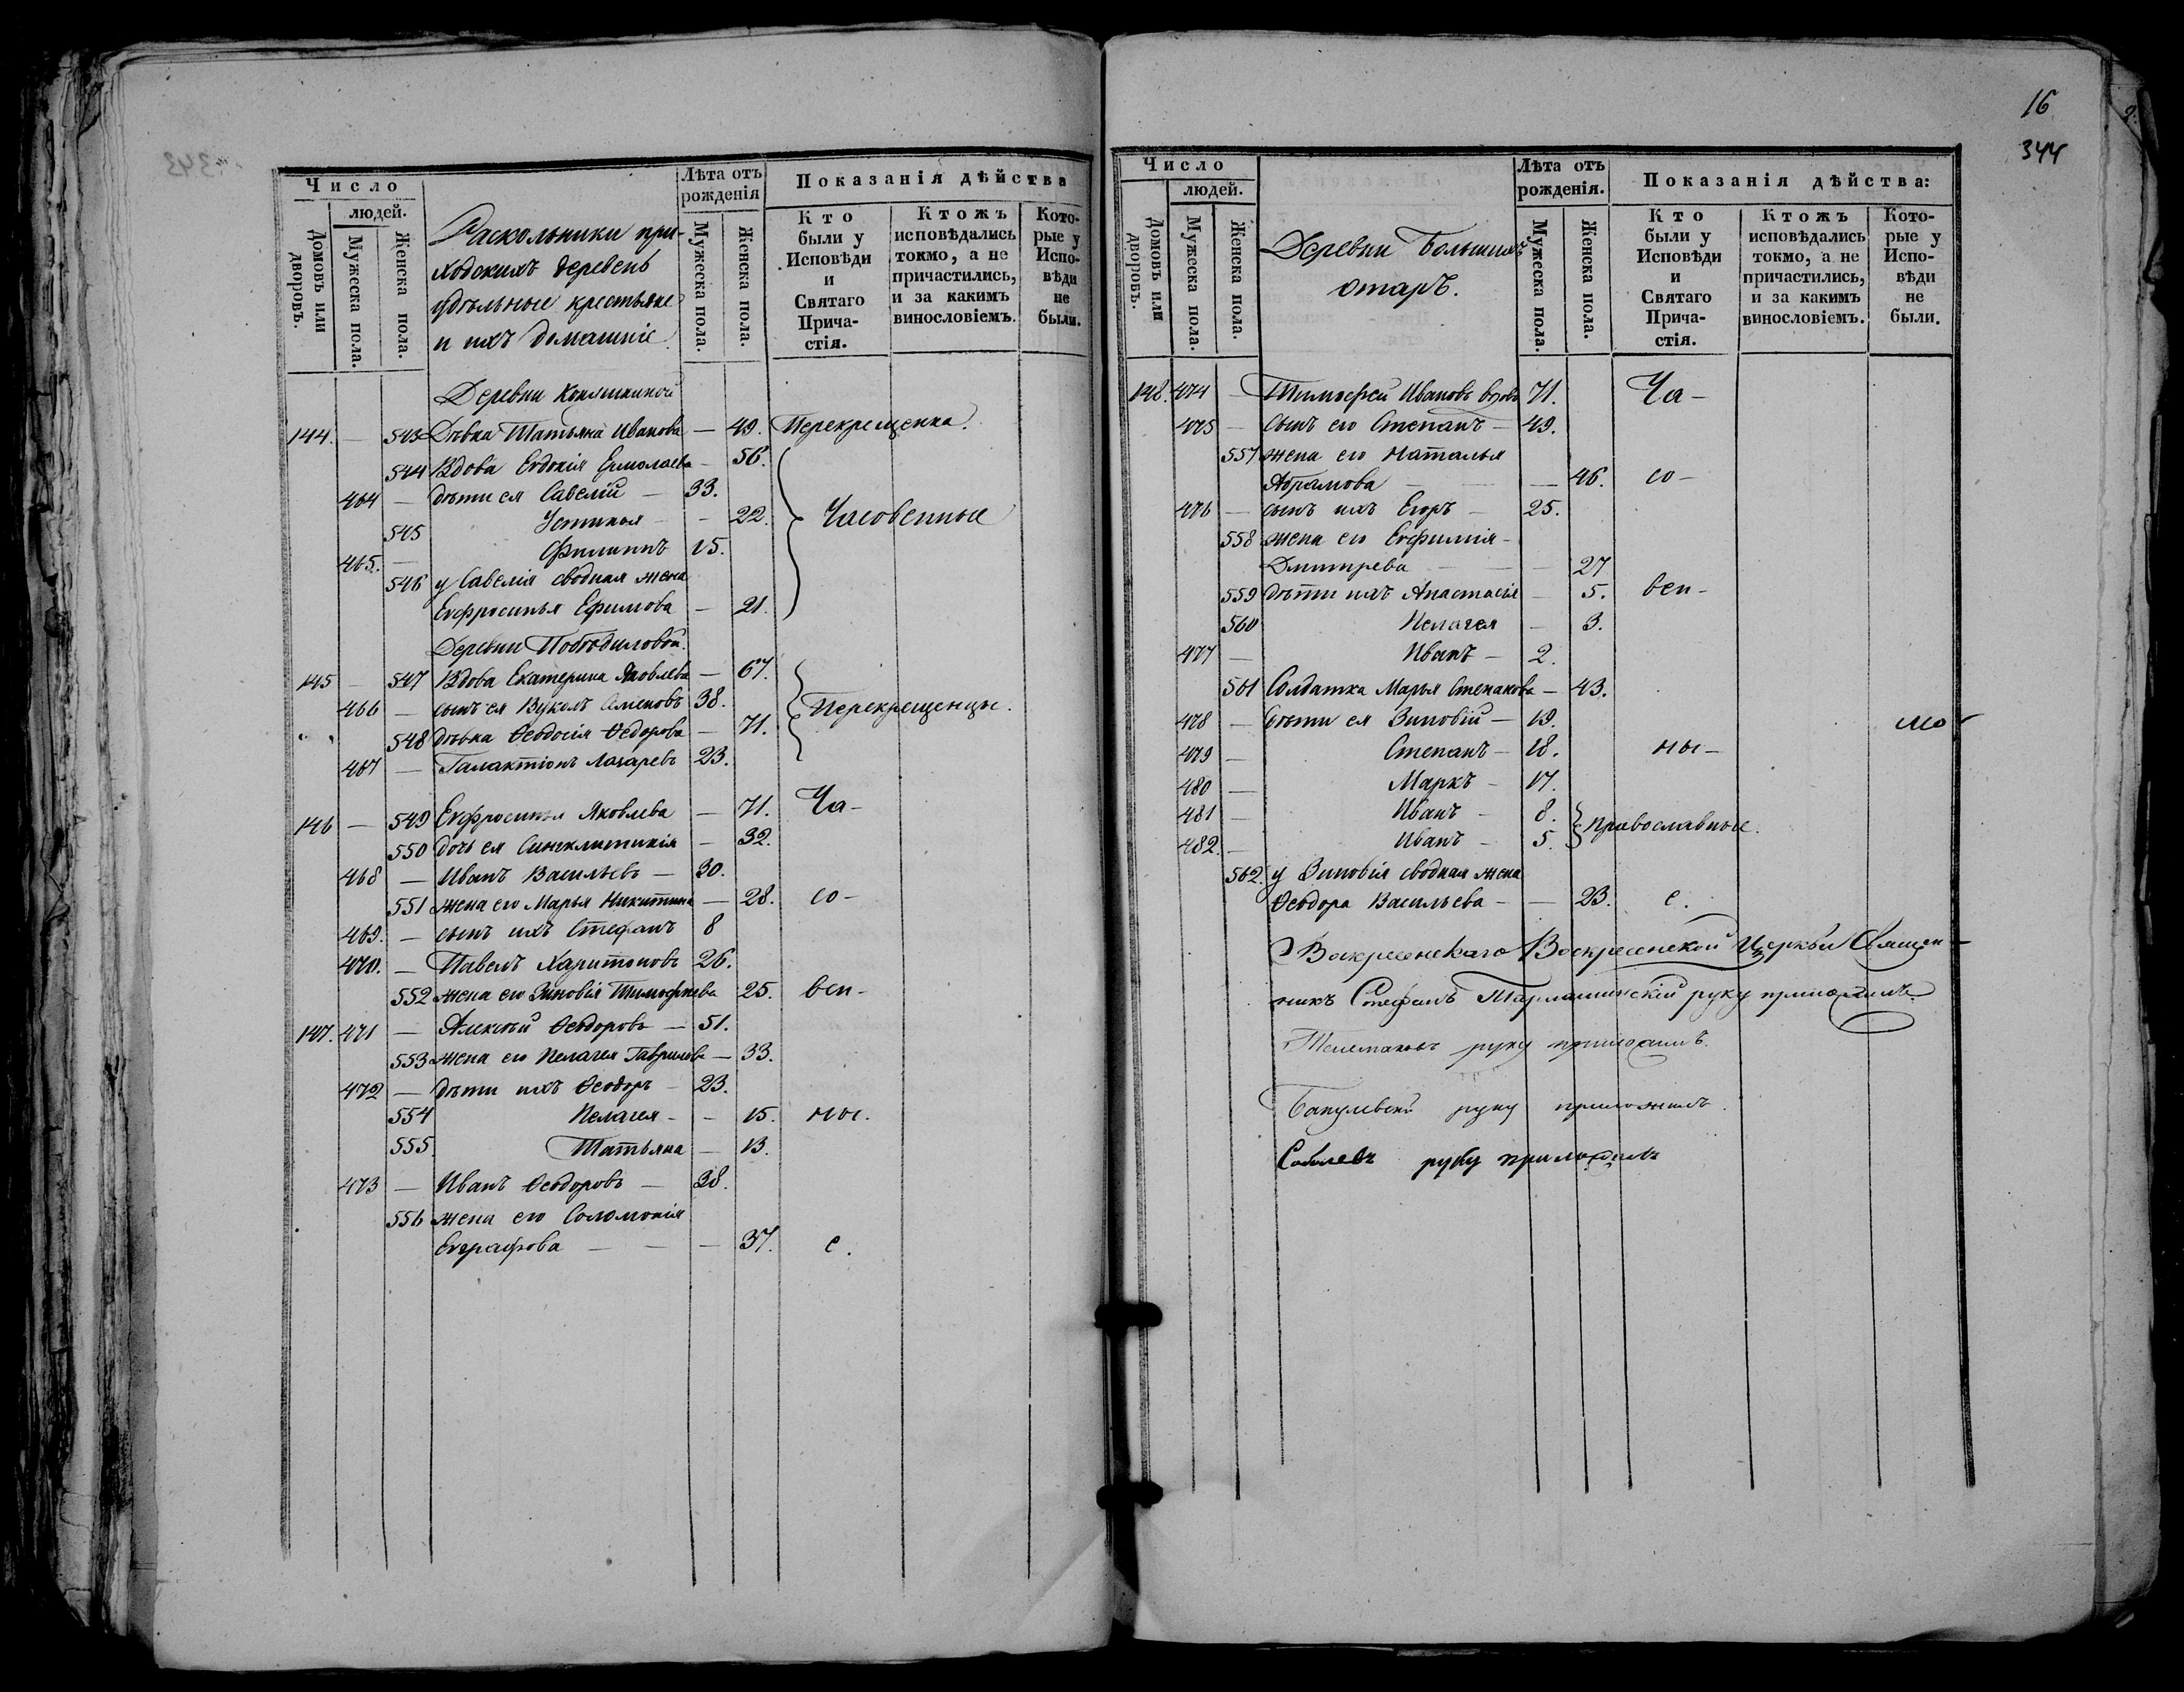 Число
людей.
Домовъ или дворовъ.
Мужеска пола.
Женска пола.
Раскольники при-
ходскихъ деревень
удѣльные крестьяне
и ихъ домашніе
Лѣта отъ
рожденія
Мужеска пола.
Женска пола.
Показанія дѣйства
Кто
были у
Исповѣди
и
Святаго
Прича-
стія.
Ктожъ
исповѣдались
токмо, а не
причастились,
и за какимъ
винословіемъ.
Кото-
рые у
Испо-
вѣди
не
были.
Деревни Коняшкиной
144. — 543 Дѣвка Татьяна Иванова — 49. Перекрещенка.
544 Вдова Евдокія Ермолаева — 56.
464 — дѣти ея Савелій — 33.
545 Устинья — — 22. Часовенные
465. — Филиппъ 15.
546 у Савелія сводная жена
Евфросинья Ефимова — 21.
Деревни Побѣдиловой.
145 — 547 Вдова Екатерина Яковлева — 67.
466 — сынъ ея Вуколъ Семеновъ 38. Перекрещенцы.
548 дѣвка Ѳеодосія Ѳедорова — 71.
467 — Галактіонъ Лазаревъ 23.
146 — 549 Евфросинья Яковлева — 71. Ча-
550 дочь ея Синклитикія — 32.
468 — Иванъ Васильевъ — 30.
551 жена его Марья Никитина — 28. со-
469. — сынъ ихъ Стефанъ 8
470. — Павелъ Харитоновъ 26.
552 жена его Зиновія Тимофеева 25. вен-
147. 471 — Алексѣй Ѳеодоровъ — 51.
553 жена его Пелагея Гаврилова — 33.
472 — дѣти ихъ Ѳеодоръ — 23.
554 Пелагея — — 15. ны.
555 Татьяна — 13.
473 — Иванъ Ѳеодоровъ — 38.
556 жена его Соломонія
Евграфова — — — 37. е.
16
344
Число
людей.
Домовъ или дворовъ.
Мужеска пола.
Женска пола.
Деревни Большихъ
отаръ.
Лѣта отъ
рожденія.
Мужеска пола.
Женска пола.
Показанія дѣйства:
Кто
были у
Исповѣди
и
Святаго
Прича-
стія.
Ктожъ
исповѣдались
токмо, а не
причастились,
и за какимъ
винословіемъ.
Кото-
рые у
Испо-
вѣди
не
были.
148. 474 — Тимофей Ивановъ вдовъ 71. Ча-
475 — сынъ его Степанъ — 49.
557 жена его Наталья
Абрамова — — — 46. со-
476 — сынъ ихъ Егоръ — 25.
558 жена его Евфимія —
Дмитрева — — — 27
559 дѣти ихъ Анастасія — 5. вен-
560 Пелагея — 3.
477 — Иванъ — 2.
561 Солдатка Марья Степанова — 43.
478 — дѣти ея Зиновій — 19.
479 — Степанъ — 18. ны-
480 — Маркъ — 17.
481 — Иванъ — 8. Православные.
482. — Иванъ — 5.
562. у Зиновія сводная жена
Ѳеодора Васильева — — 23. е.
Воскресенскаго Воскресенской Церкви Священ-
никъ Стефанъ руку приложилъ.
руку приложилъ.
руку приложилъ.
Соболевъ руку приложилъ